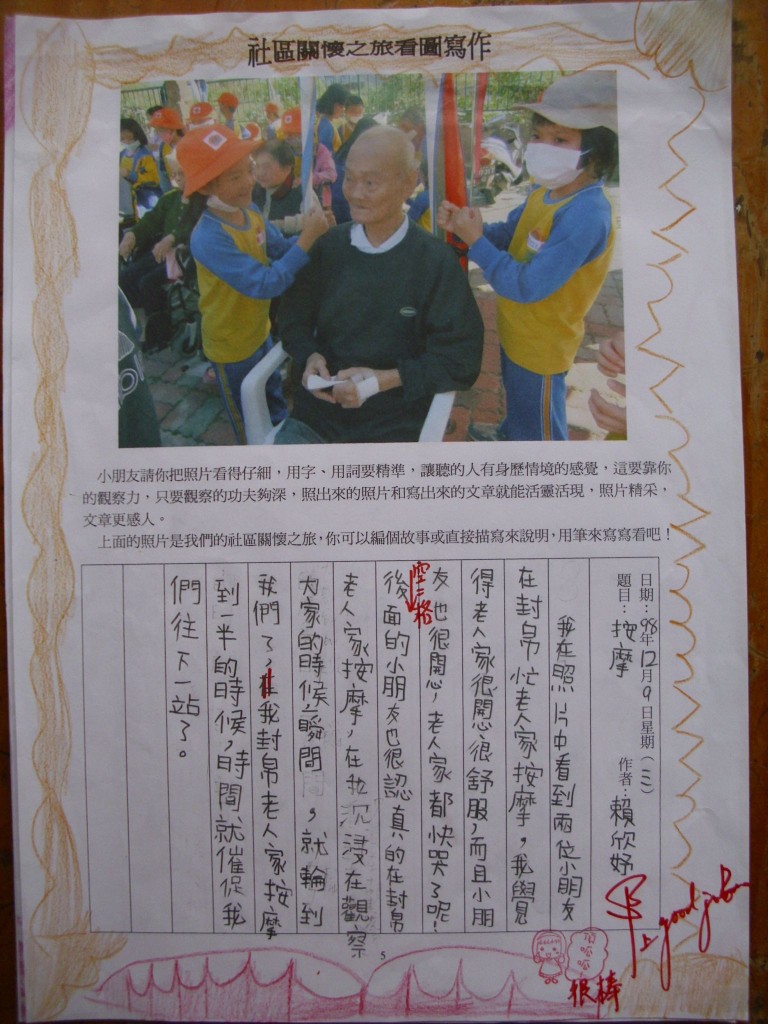 社區關懷之旅看圖寫作
小朋友請你把照片看得仔細，用字、用詞要精準，讓聽的人有身歷情境的感覺，這要靠你
的觀察力，只要觀察的功夫夠深，照出來的照片和寫出來的文章就能活靈活現，照片精采，
文章更感人。
上面的照片是我們的社區關懷之旅，你可以編個故事或直接描寫來說明，用筆來寫寫看吧！
日期：98年12月9日星期（三）
題目：按摩 作者：賴欣妤
我在照片中看到兩位小朋友
在幫忙老人家按摩，我覺
得老人家很開心很舒服，而且小朋
友也很開心，老人家都快哭了呢！
空二格
後面的小朋友也很認真的在幫
老人家按摩，在我沉浸在觀察
大家的時候瞬間，就輪到
我們了，在我幫老人家按摩
到一半的時候，時間就催促我
們往下一站了。
good job
頂呱呱
很棒
5